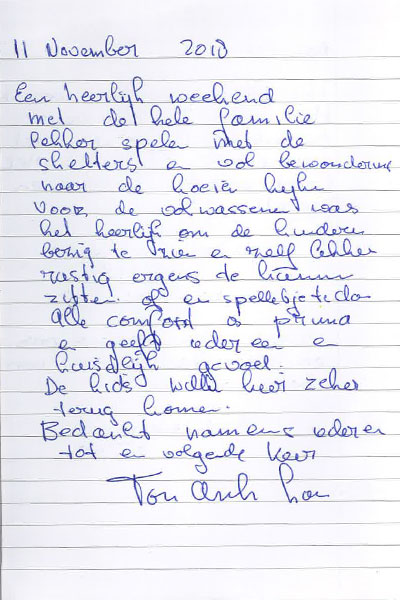 11 November 2018
Een heerlijk weekend
met de hele familie
lekker spelen met de
skelters en vol bewondering
naar de koeien kijken
Voor de volwassenen was
het heerlijk om de kinderen
bezig te zien en zelf lekker
rustig ergens te kunnen
zitten of en spelletje te doen
Alle comfort is prima
en geeft iedereen en
huiselijk gevoel.
De kids willen hier zeker
terug komen.
Bedankt namens iedereen
tot en volgende keer
Ton